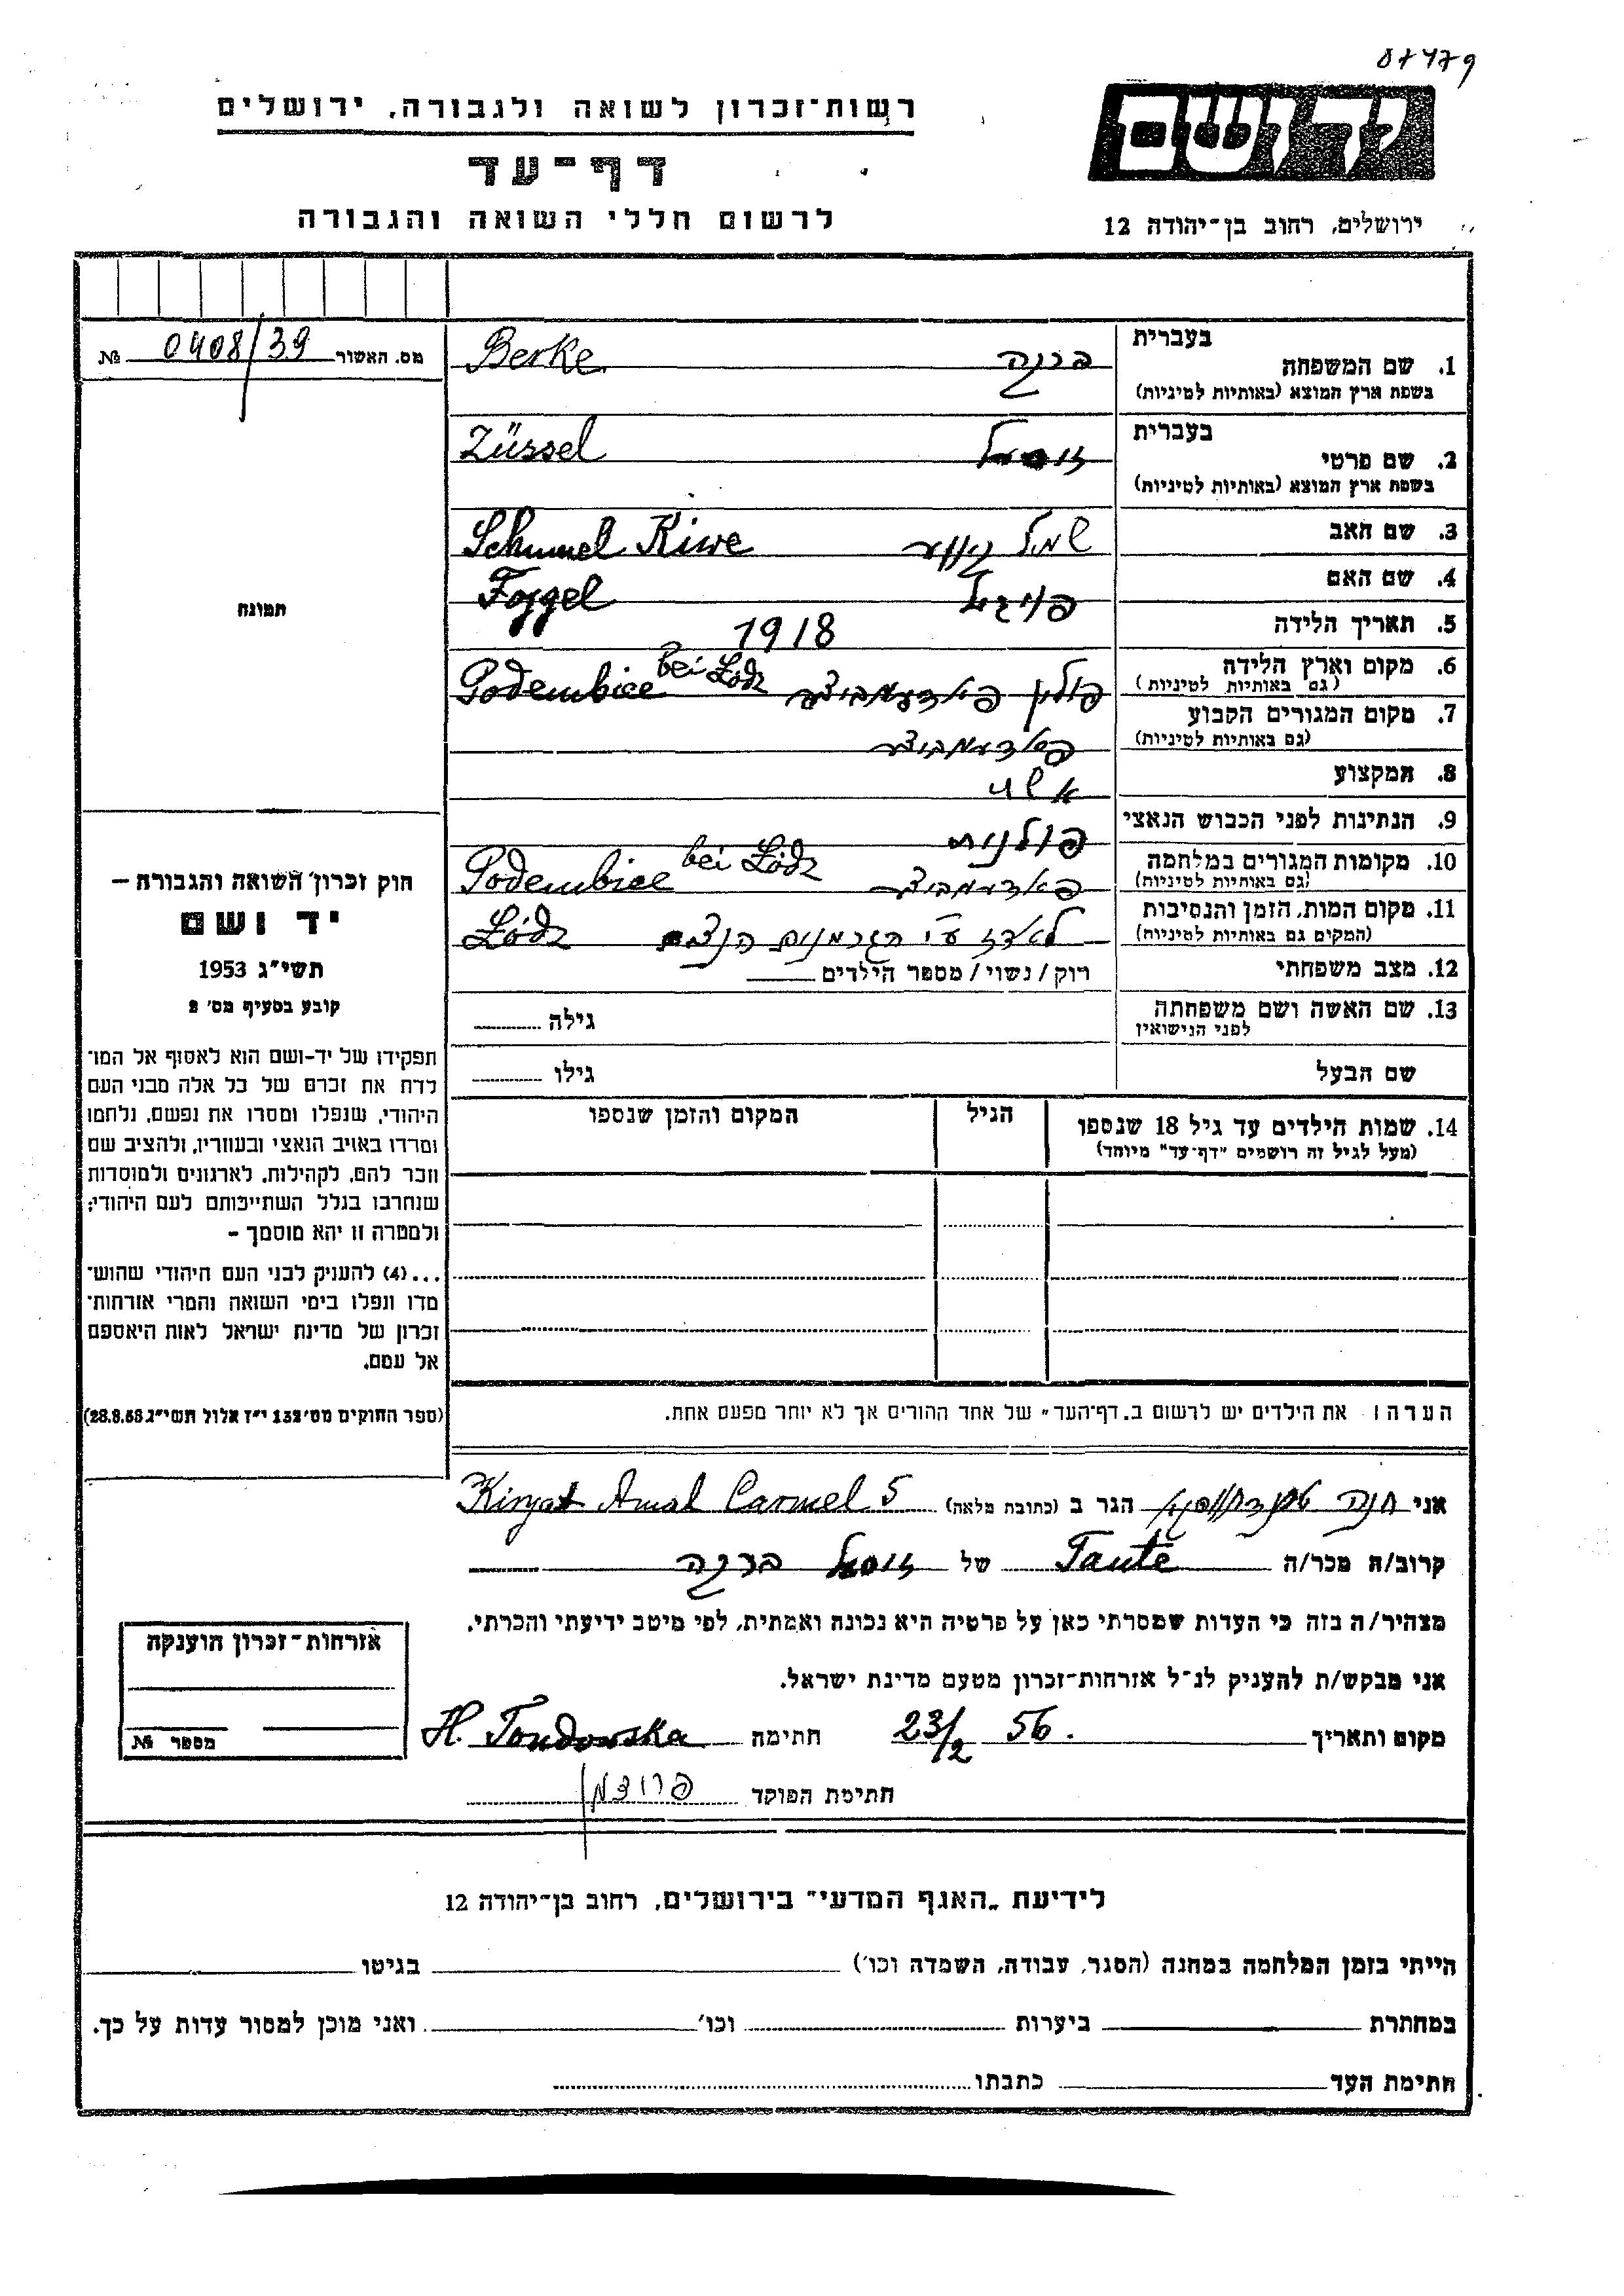 87479
רשות־זכרון לשואה ולגבורה, ירושלים
יד ושם
דף־עד
לרשום חללי השואה והגבורה
ירושלים, רחוב בן־יהודה 12
מס. האשור 0408/39 №
1. שם המשפחה בעברית ברקה Berke
בשפת ארץ המוצא (באותיות לטיניות)
2. שם פרטי בעברית זוסל Züssel
בשפת ארץ המוצא (באותיות לטיניות)
3. שם האב שמל קיווע Schmuel Kiwe
4. שם האם פויגל Foygel
5. תאריך הלידה 1918
6. מקום וארץ הלידה פולין פאדעמביצע Podembice bei Łódz
(גם באותיות לטיניות)
7. מקום המגורים הקבוע פאדעמביצע
(גם באותיות לטיניות)
8. המקצוע
9. הנתינות לפני הכבוש הנאצי פולנית
10. מקומות המגורים במלחמה פאדעמביצע Podembice bei Łódz
(גם באותיות לטיניות)
11. מקום המות, הזמן והנסיבות לאדז ע״י הגרמנים Łódz
(המקום גם באותיות לטיניות)
12. מצב משפחתי רוק / נשוי / מספר הילדים
13. שם האשה ושם משפחתה גילה
לפני הנישואין
שם הבעל גילו
14. שמות הילדים עד גיל 18 שנספו הגיל המקום והזמן שנספו
(מעל לגיל זה רושמים "דף־עד" מיוחד)
תמונה
חוק זכרון השואה והגבורה —
יד ושם
תשי"ג 1953
קובע בסעיף מס' 2
תפקידו של יד-ושם הוא לאסוף אל המו־
לדת את זכרם של כל אלה מבני העם
היהודי, שנפלו ומסרו את נפשם, נלחמו
ומרדו באויב הנאצי ובעוזריו, ולהציב שם
וזכר להם, לקהילות, לארגונים ולמוסדות
שנחרבו בגלל השתייכותם לעם היהודי;
ולמטרה זו יהא מוסמך -
...(4) להעניק לבני העם היהודי שהוש־
מדו ונפלו בימי השואה והמרי אזרחות־
זכרון של מדינת ישראל לאות היאספם
אל עמם.
(ספר החוקים מס' 132 י"ז אלול תשי"ג 28.8.53)
הערה: את הילדים יש לרשום ב„דף־העד" של אחד ההורים אך לא יותר מפעם אחת.
אני חנה הגר ב (כתובת מלאה) Kirjat Amal Carmel 5
קרוב/ה מכר/ה Tante של זוסל ברקה
מצהיר/ה בזה כי העדות שמסרתי כאן על פרטיה היא נכונה ואמתית, לפי מיטב ידיעתי והכרתי.
אני מבקש/ת להעניק לנ"ל אזרחות־זכרון מטעם מדינת ישראל.
מקום ותאריך 23/2 56. חתימה H. Tondowska
חתימת הפוקד
אזרחות־זכרון הוענקה
מספר №
לידיעת „האגף המדעי" בירושלים, רחוב בן־יהודה 12
הייתי בזמן המלחמה במחנה (הסגר, עבודה, השמדה וכו') בגיטו
במחתרת ביערות וכו' ואני מוכן למסור עדות על כך.
חתימת העד כתבתו